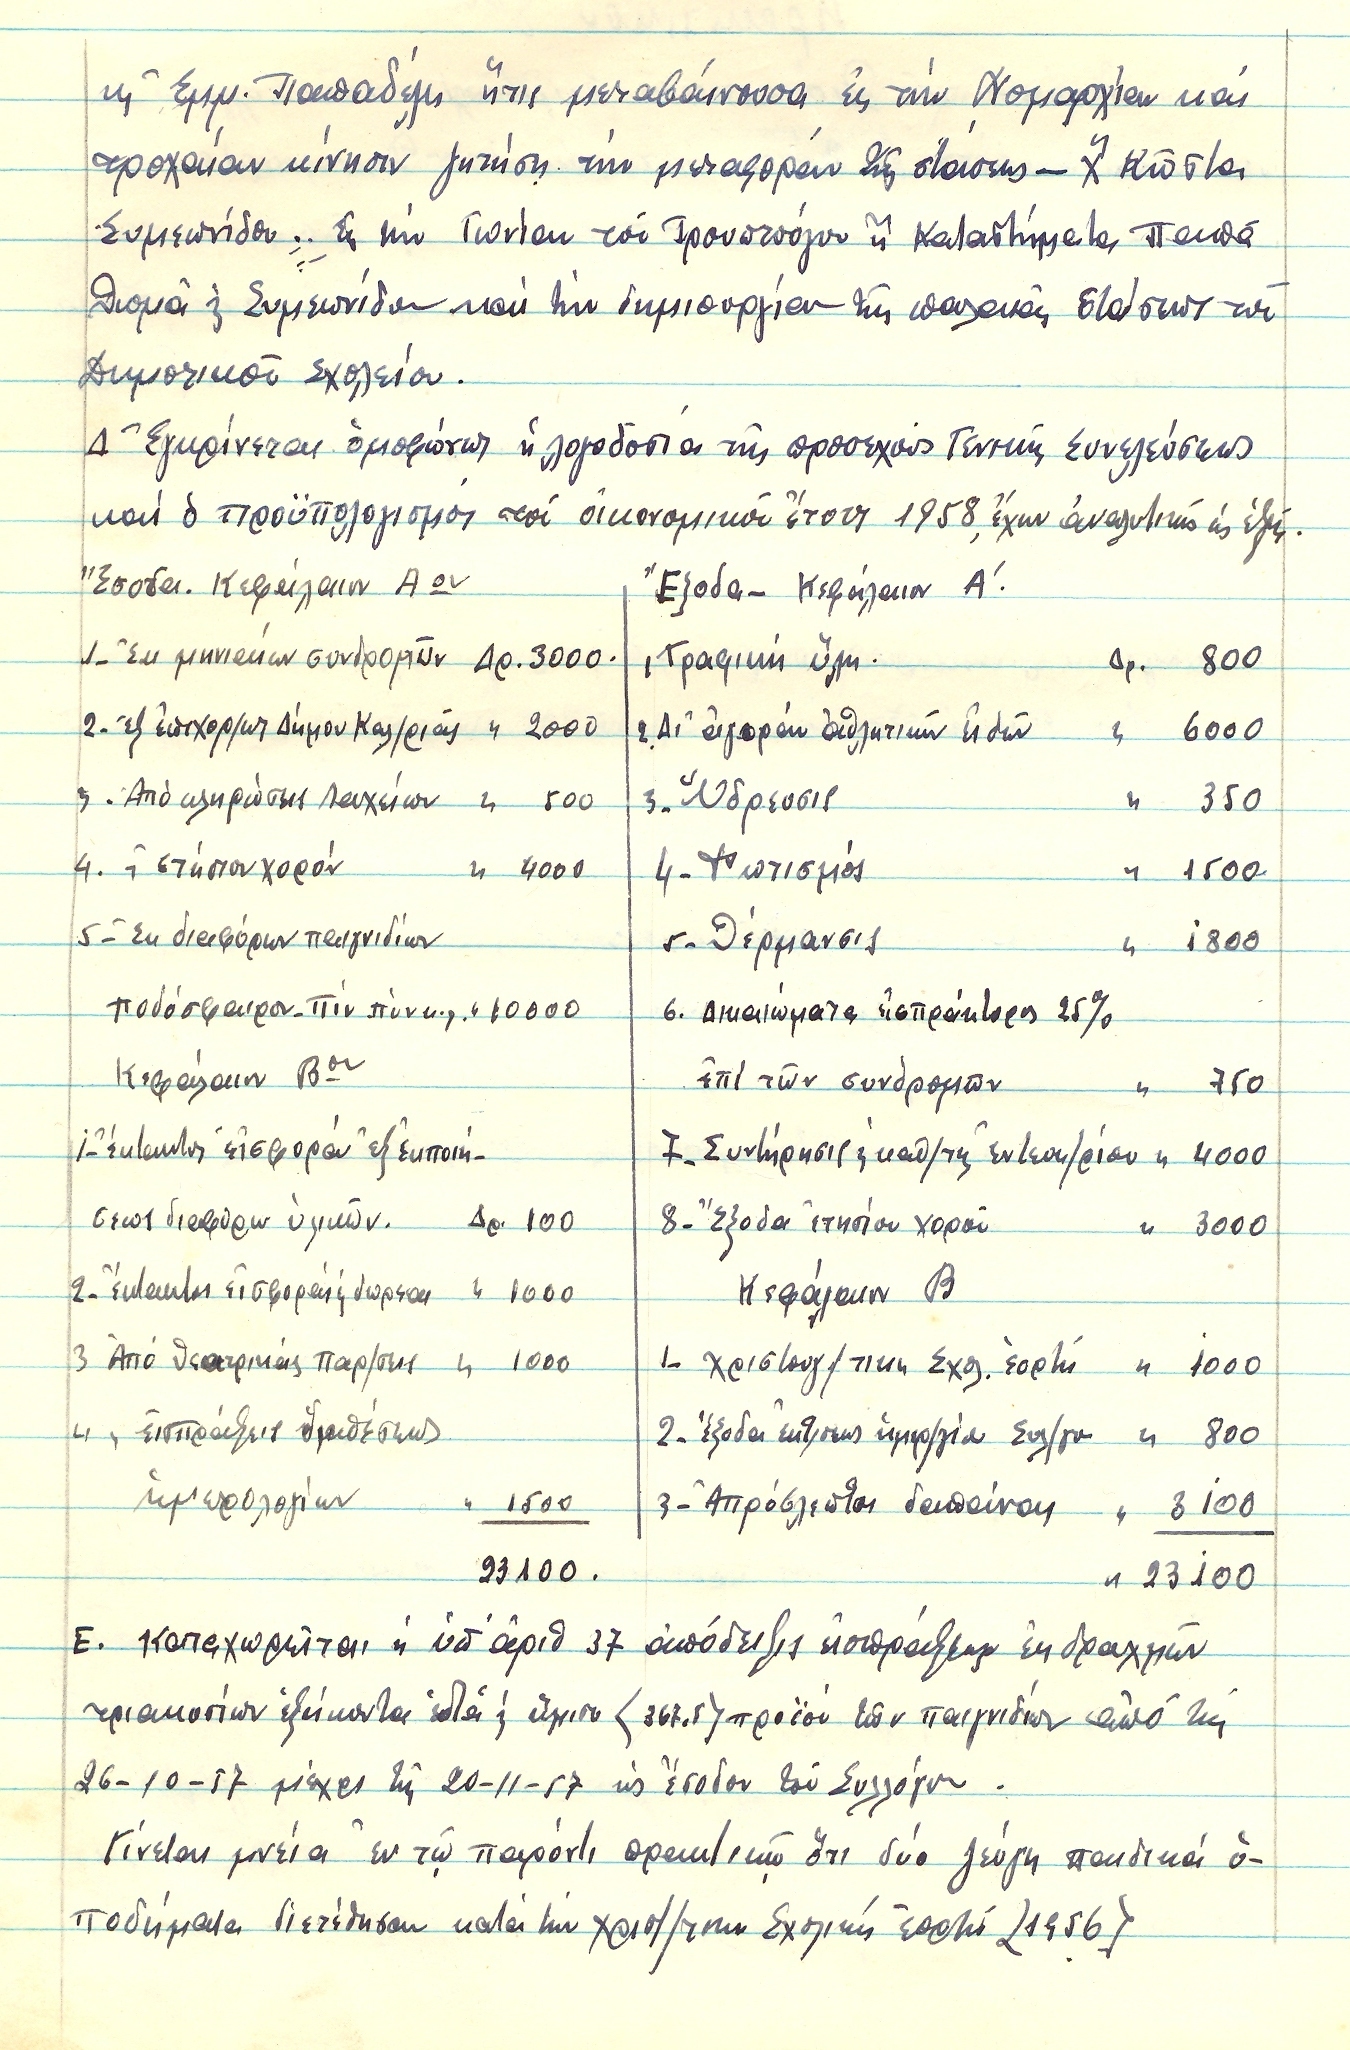 κῆ Ἐμμ. Παπαδέλη ἥτις μεταβαίνουσα εἰς τήν Νομαρχίαν καί
τροχαίαν κίνησιν ζητήσῃ τήν μεταφοράν τῆς στάσεως — Χ" Κῶστα
Συμεωνίδου .. εἰς τήν Γωνίαν τοῦ ἤ Καταστήματα Παπᾶ
Θωμᾶ ἤ Συμεωνίδου καί τήν δημιουργίαν τῆς παλαιᾶς Στάσεως τοῦ
Δημοτικοῦ Σχολείου.
Δ Ἐγκρίνεται ὁμοφώνως ἡ λογοδοσία τῆς προσεχοῦς Γενικῆς Συνελεύσεως
καί ὁ προϋπολογισμός τοῦ οἰκονομικοῦ ἔτους 1958, ἔχων ἀναλυτικῶς ὡς ἑξῆς.
Ἔσοδα. Κεφάλαιον Α ον
1- Ἐκ μηνιαίων συνδρομῶν Δρ. 3000.
2- ἐξ ἐπιχορ/ως Δήμου Καλ/ριᾶς " 2000
3. Ἀπό κληρώσεις λαχείων " 500
4. " ἐτήσιον χορόν " 4000
5- Ἐκ διαφόρων παιγνιδίων
ποδόσφαιρον - Πίν πόνκ.λ. " 10000
Κεφάλαιον Β ον
1- Ἔκτακτος εἰσφορά ἐξ ἐκποιή-
σεως διαφόρων ὑλικῶν. Δρ. 100
2- Ἔκτακτος εἰσφοραί ἤ δωρεαι " 1000
3 Ἀπό θεατρικάς παρ/σεις " 1000
4 " εἰσπράξεις διαθέσεως
ἡμερολογίων " 1500
23100.
Ἔξοδα - Κεφάλαιον Α΄.
1 Γραφική ὕλη. Δρ. 800
2. Δι' ἀγοράν ἀθλητικῶν εἰδῶν " 6000
3- Ὕδρευσις " 350
4- Φωτισμός " 1500
5- Θέρμανσις " 1800
6. Δικαιώματα εἰσπράκτορος 25%
ἐπί τῶν συνδρομῶν " 750
7- Συντήρησις ἤ καθ/της ἐντευκ/ρίου " 4000
8- Ἔξοδα ἐτησίου χοροῦ " 3000
Κεφάλαιον Β
1- Χριστουγ/τικη Σχολ. ἑορτή " 1000
2- Ἔξοδα ἐκτ/σεως ἡμερ/γία Συλ/γου " 800
3- Ἀπρόβλεπτοι δαπάναι " 3100
" 23100
Ε. Καταχωρεῖται ἡ ὑπ' ἀριθ 37 ἀπόδειξις εἰσπράξεων ἐκ δραχμῶν
τριακοσίων ἑξήκοντα ἑπτά ἤ ἥμισυ (367.5) προϊόν τῶν παιγνιδίων ἀπό τῆς
26-10-57 μέχρι τῆς 20-11-57 ὡς ἔσοδον τοῦ Συλλόγου.
Γίνεται μνεία ἐν τῷ παρόντι πρακτικῷ ὅτι δύο ζεύγη παιδικά ὑ-
ποδήματα διετέθησαν κατά τήν χριστ/τικην Σχολικήν ἑορτήν (1956)